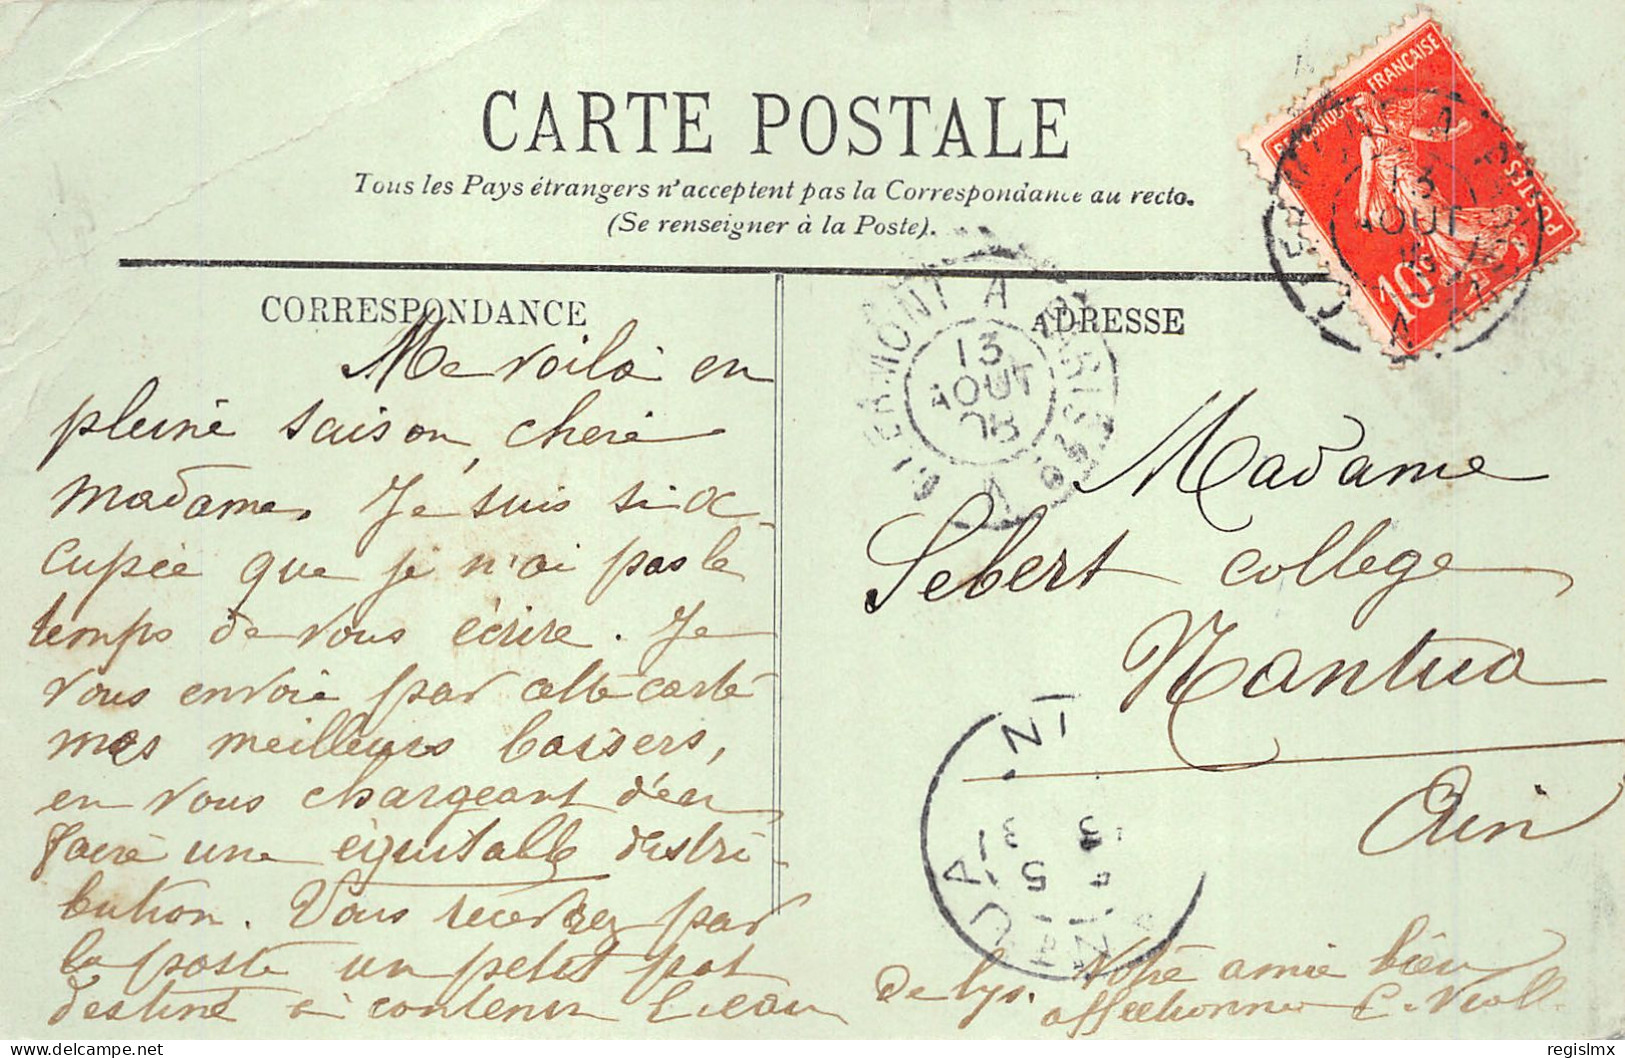 CARTE POSTALE
Tous les Pays étrangers n'acceptent pas la Correspondance au recto.
(Se renseigner à la Poste).
CORRESPONDANCE
Me voilà en
pleine saison, chère
madame. Je suis si oc-
cupée que je n'ai pas le
temps de vous écrire. Je
vous envoie par cette carte
mes meilleurs baisers,
en vous chargeant d'en
faire une équitable distri-
bution. Vous recevrez par
la poste un petit pot
destiné à contenir l'eau
de lys. Votre amie bien
affectionnée
ADRESSE
Madame
Sebert college
Nantua
Ain
REPUBLIQUE FRANÇAISE
POSTES
10
13
AOUT
CLERMONT A
13
AOUT
08
delcampe.net
regislmx